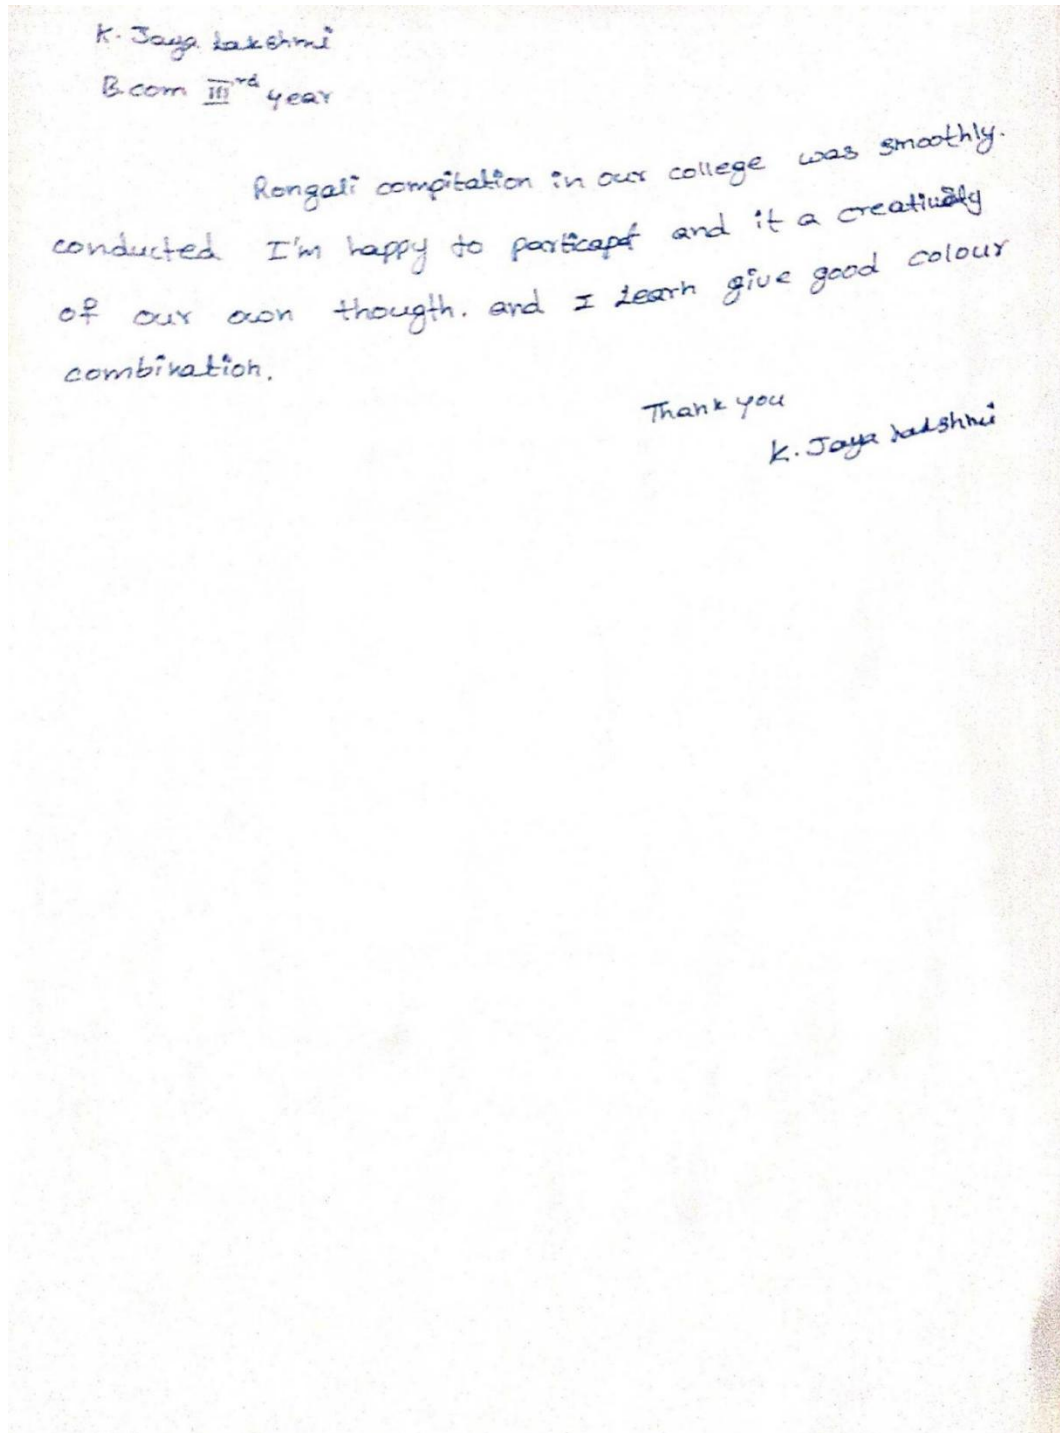 K. Jaya Lakshmi
B.com IIIrd year
Rongali compitation in our college was smoothly.
conducted I'm happy to particapt and it a creatively
of our own thougth. and I Learn give good colour
combination.
Thank you
K. Jaya Lakshmi